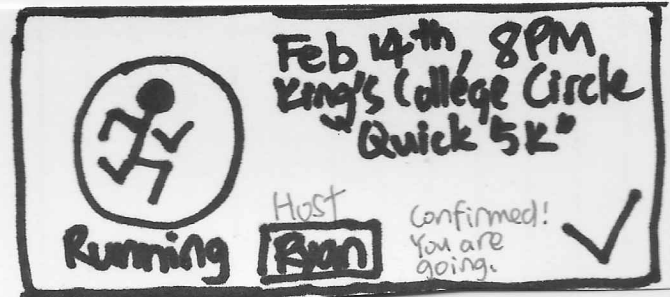 Feb 14th, 8PM
King's College Circle
"Quick 5K"
Running
Host
Ryan
Confirmed!
You are
going.